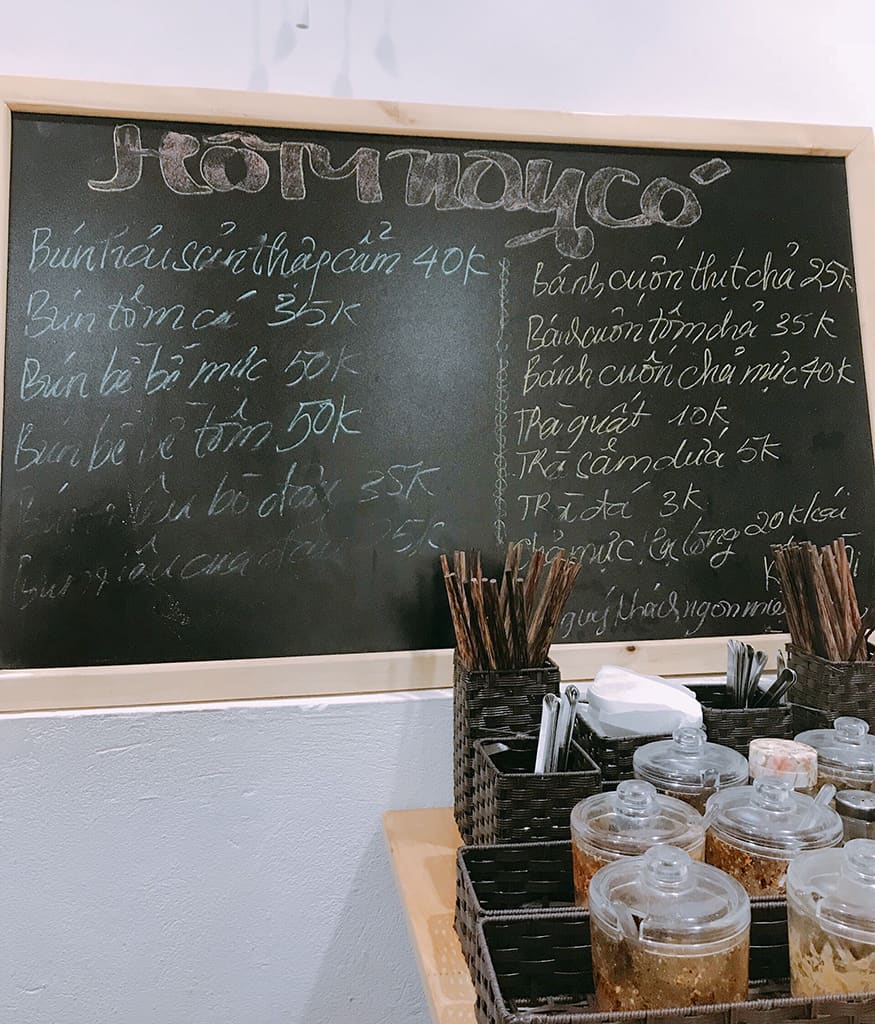 Hôm nay có
Bún hải sản thập cẩm 40K
Bún tôm cá 35K
Bún bề bề mực 50K
Bún bề bề tôm 50K
Bún riêu bò đậu 35K
Bún riêu cua đậu 25K
Bánh cuốn thịt chả 25K
Bánh cuốn tôm chả 35K
Bánh cuốn chả mực 40K
Trà quất 10K
Trà sâm dứa 5K
Trà đá 3K
Chả mực Hạ Long 20K/cái
quý khách ngon miệng